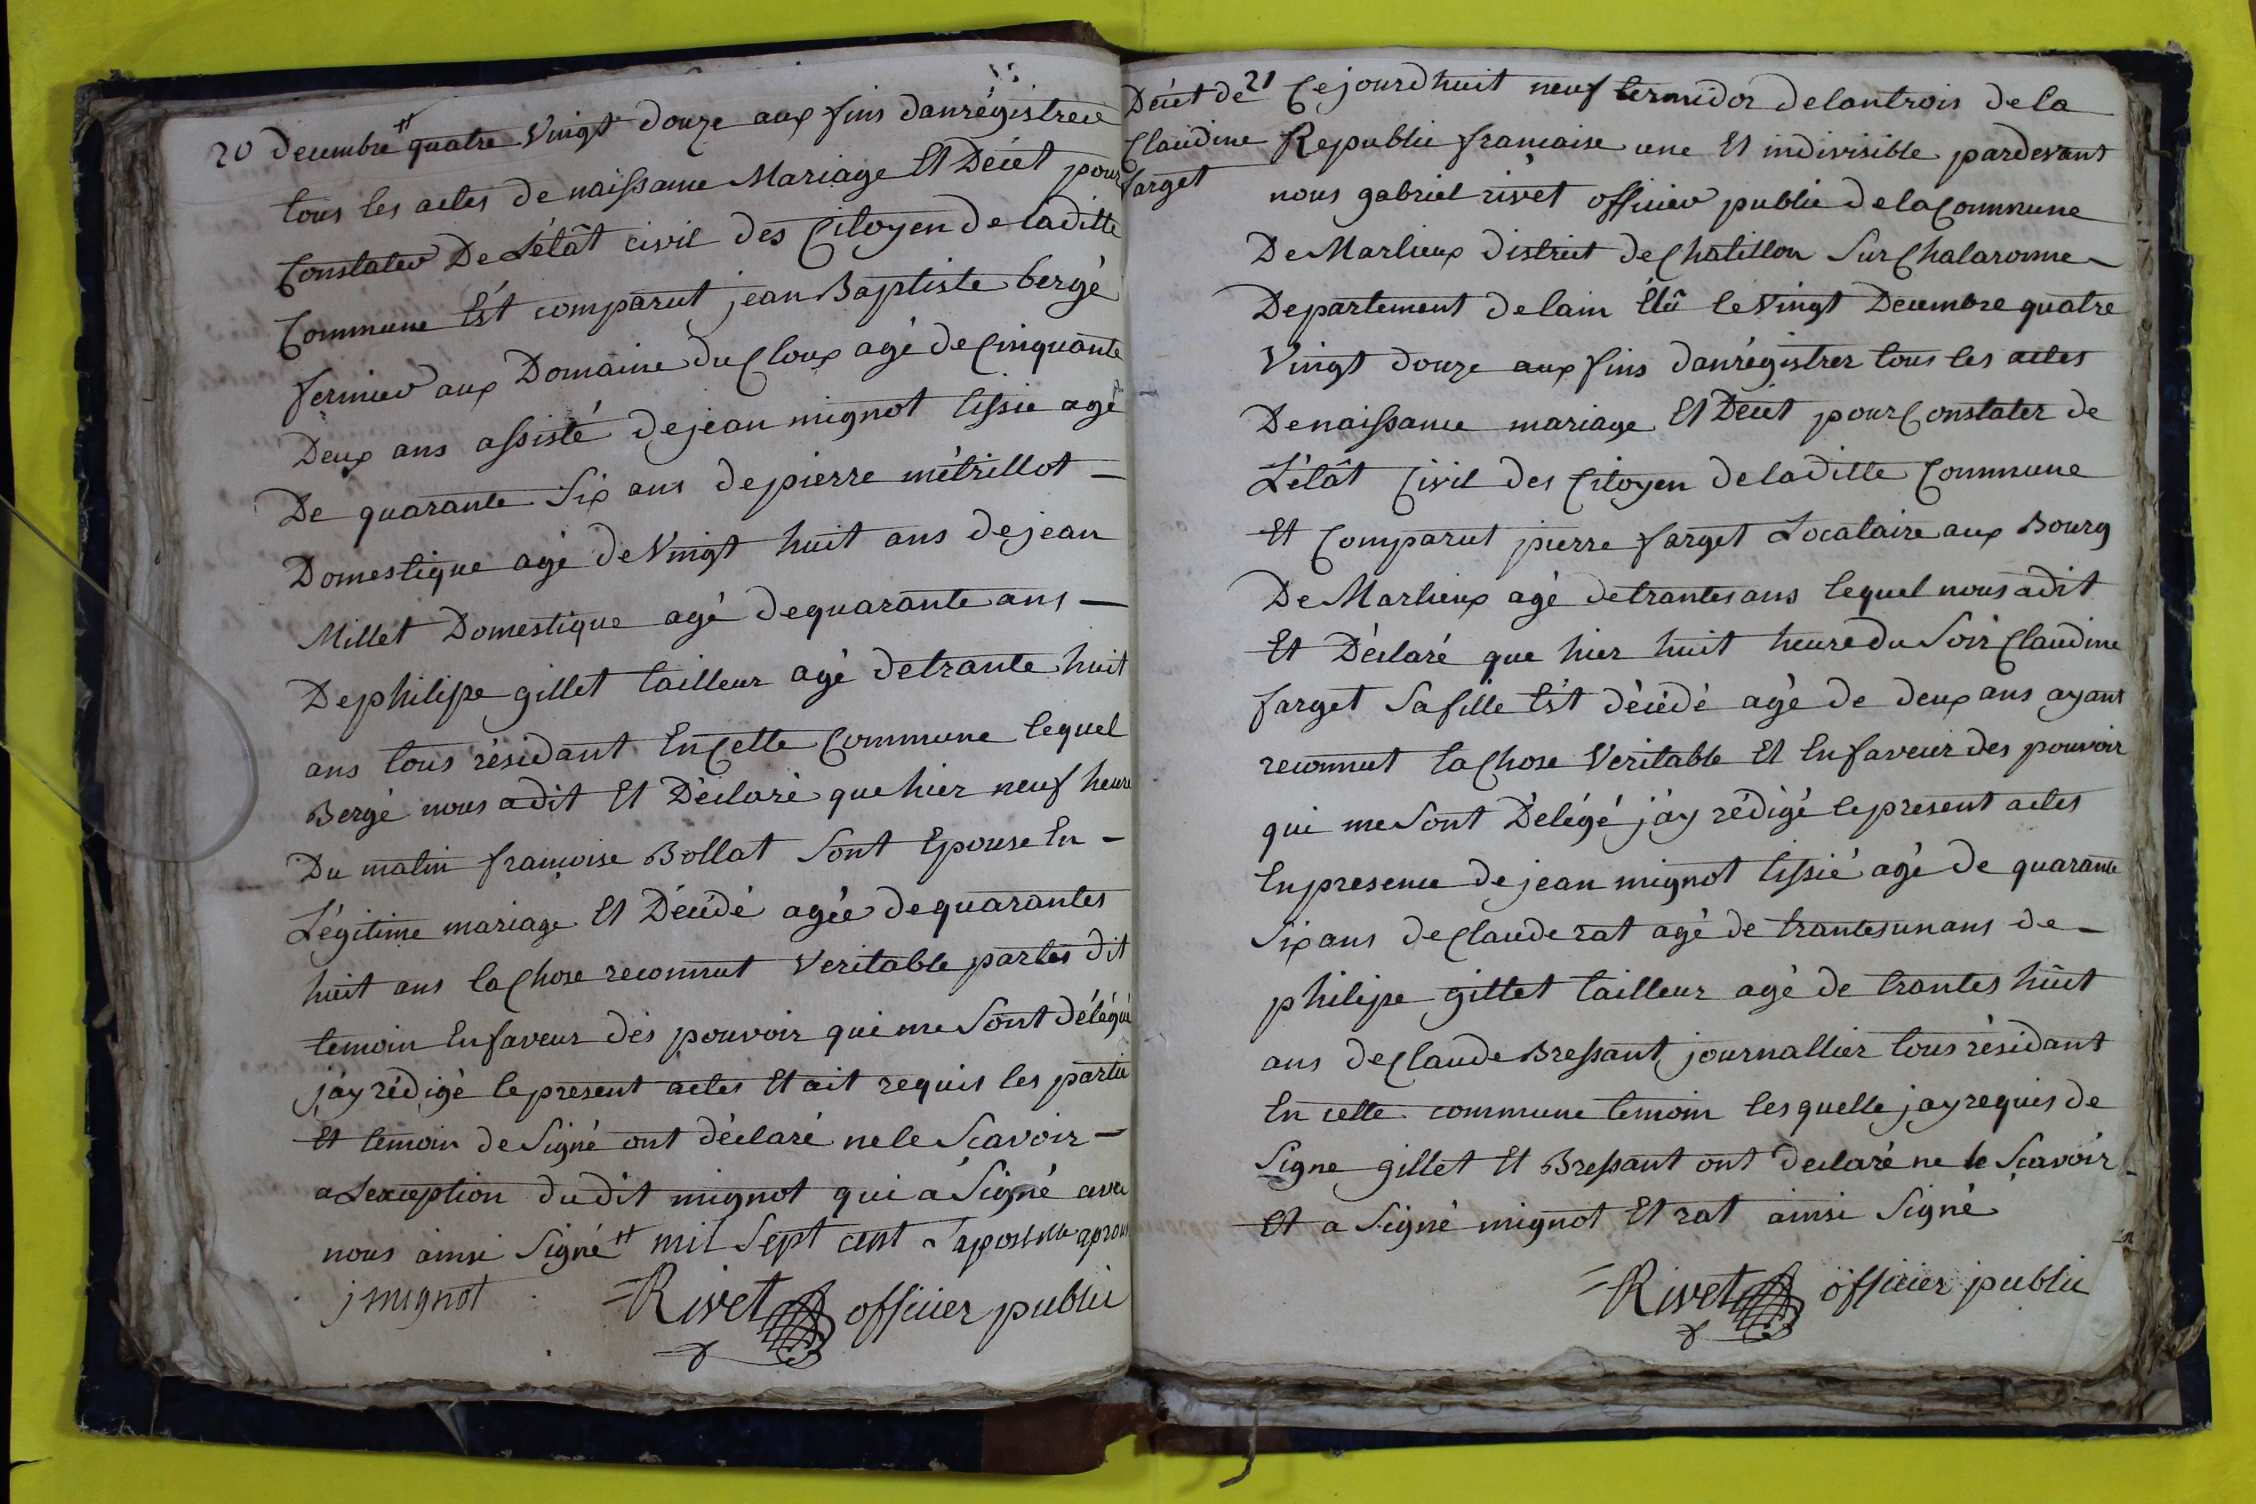 20 decembre # quatre vingt douze aux fins danrégistrere
tous les actes de naissance Mariage Et Décet pour
Constater De Létât civil des Citoyen de laditte
Commune Est comparut jean Baptiste bergé
fermier aux Domaine du Cloux agé de Cinquante
Deux ans assisté de jean mignot tissie agé
De quarante Six ans de pierre métrillot
Domestique agé de Vingt huit ans de jean
Millet Domestique agé de quarante ans
De philippe gillet tailleur agé de trante huit
ans tous résidant En Cette Commune lequel
Bergé nous a dit Et Déclaré que hier neuf heure
Du matin françoise Bollat Sont Epouse En
Légitime mariage Et Décédé agée de quarantes
huit ans la Chose reconnut Veritable par les dit
temoin En faveur des pouvoir qui me Sont délégué
j'ay rédigé le present actes Et ait requis les partie
Et temoin de Signé ont déclaré ne le Scavoir
a Lexception dudit mignot qui a Signé avec
nous ainsi Signé # mil Sept cent apostille aprouv
j mignot Rivet officier public
Décet de
Claudine
farget
21 Cejourdhuit neuf termidor de lan trois de la
Republic francaise une Et indivisible pardevant
nous gabriel rivet officier public de la Commune
De Marlieux district de Chatillon Sur Chalaronne
Departement de lain Elû le Vingt Decembre quatre
Vingt douze aux fins danrégistrer tous les actes
De naissance mariage Et Décet pour Constater de
Létât Civil des Citoyen de laditte Commune
Et Comparut pierre farget Locataire aux Bourg
De Marlieux agé de trantes ans lequel nous a dit
Et Déclaré que hier huit heure du Soir Claudine
farget Sa fille Est décédé agé de deux ans ayant
reconnut la Chose Veritable Et En faveur des pouvoir
qui me Sont Délégé j'ay rédigé le present actes
En presence de jean mignot tissié agé de quarante
Six ans de Claude rat agé de trantes un ans de
philippe gillet tailleur agé de trantes huit
ans de Claude Bressant journallier tous résidant
En cette commune temoin lesquelle j'ay requis de
Signe gillet Et Bressant ont declaré ne le Scavoir
Et a Signé mignot Et rat ainsi Signé
Rivet officier public